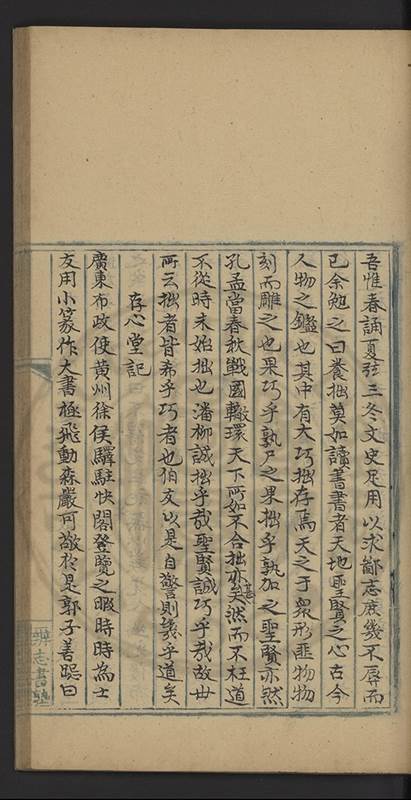 吾惟春誦夏弦三冬文史足用以求鄙志庶幾不辱而
已余勉之曰養拙莫如讀書書者天地聖賢之心古今
人物之鑑也其中有大巧拙存焉天之于衆形匪物物
刻而雕之也果巧乎孰尸之果拙乎孰加之聖賢亦然
孔孟當春秋戰國轍環天下所如不合拙亦甚矣然而不枉道
不從時未始拙也潘柳誠拙乎哉聖賢誠巧乎哉故世
所云拙者皆希乎巧者也伯友以是自警則幾乎道矣
存心堂記
廣東布政使黄州徐侯驥駐快閣登覽之暇時時為士
友用小篆作大書極飛動森嚴可敬於是郭子善暌曰
辨志書塾